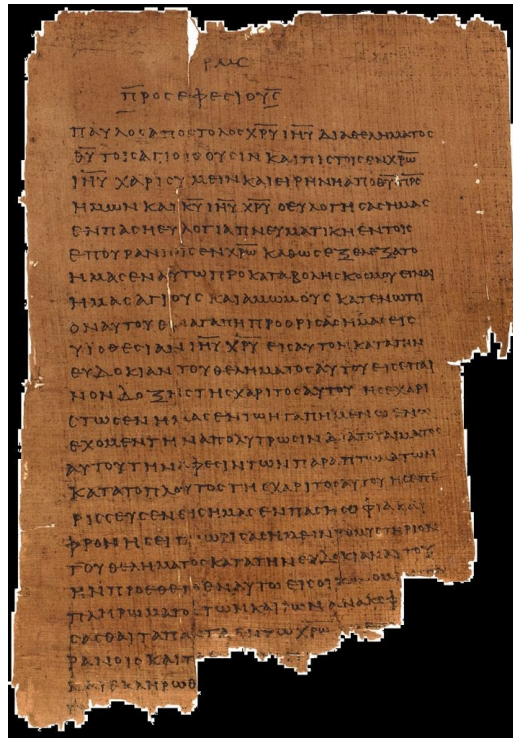 ΡΜϚ
ΠΡΟϹΕΦΕϹΙΟΥϹ
ΠΑΥΛΟϹΑΠΟϹΤΟΛΟϹΧ̅Ρ̅Υ̅ Ι̅Η̅Υ̅ ΔΙΑΘΕΛΗΜΑΤΟϹ
Θ̅Υ̅ ΤΟΙϹΑΓΙΟΙϹΟΥϹΙΝ ΚΑΙΠΙϹΤΟΙϹΕΝΧ̅Ρ̅Ω̅
Ι̅Η̅Υ̅ ΧΑΡΙϹΥΜΕΙΝΚΑΙΕΙΡΗΝΗΑΠΟΘ̅Υ̅Π̅Ρ̅Ϲ̅
ΗΜΩΝ ΚΑΙ Κ̅Υ̅ Ι̅Η̅Υ̅ Χ̅Ρ̅Υ̅ ΟΕΥΛΟΓΗϹΑϹΗΜΑϹ
ΕΝΠΑϹΗΕΥΛΟΓΙΑΠΝΕΥΜΑΤΙΚΗΕΝΤΟΙϹ
ΕΠΟΥΡΑΝΙΟΙϹΕΝΧ̅Ρ̅Ω̅ ΚΑΘΩϹΕΞΕΛΕΞΑΤΟ
ΗΜΑϹΕΝΑΥΤΩΠΡΟΚΑΤΑΒΟΛΗϹΚΟϹΜΟΥΕΙΝΑΙ
ΗΜΑϹΑΓΙΟΥϹ ΚΑΙΑΜΩΜΟΥϹ ΚΑΤΕΝΩΠΙ
ΟΝΑΥΤΟΥΕΝΑΓΑΠΗΠΡΟΟΡΙϹΑϹΗΜΑϹΕΙϹ
ΥΙΟΘΕϹΙΑΝΙ̅Η̅Υ̅ Χ̅Ρ̅Υ̅ ΕΙϹΑΥΤΟΝΚΑΤΑΤΗΝ
ΕΥΔΟΚΙΑΝΤΟΥΘΕΛΗΜΑΤΟϹΑΥΤΟΥΕΙϹΕΠΑΙ
ΝΟΝΔΟΞΗϹΤΗϹΧΑΡΙΤΟϹΑΥΤΟΥ ΗϹΕΧΑΡΙ
ϹΤΩϹΕΝΗΜΑϹΕΝΤΩΗΓΑΠΗΜΕΝΩΕΝΩ
ΕΧΟΜΕΝΤΗΝΑΠΟΛΥΤΡΩϹΙΝΔΙΑΤΟΥΑΙΜΑΤΟϹ
ΑΥΤΟΥΤΗΝΑΦΕϹΙΝΤΩΝΠΑΡΑΠΤΩΜΑΤΩΝ
ΚΑΤΑΤΟΠΛΟΥΤΟϹΤΗϹΧΑΡΙΤΟϹΑΥΤΟΥΗϹΕΠΕ
ΡΙϹϹΕΥϹΕΝΕΙϹΗΜΑϹΕΝΠΑϹΗϹΟΦΙΑΚΑΙ
ΦΡΟΝΗϹΕΙΓΝΩΡΙϹΑϹΗΜΕΙΝΤΟΜΥϹΤΗΡΙΟΝ
ΤΟΥΘΕΛΗΜΑΤΟϹΚΑΤΑΤΗΝΕΥΔΟΚΙΑΝΑΥΤΟΥ
ΗΝΠΡΟΕΘΕΤΟΕΝΑΥΤΩΕΙϹΟΙΚΟΝΟΜ
ΠΛΗΡΩΜΑΤΟϹΤΩΝΚΑΙΡΩΝΑΝΑΚΕΦ
ϹΑϹΘΑΙΤΑΠΑΝΤΑΕΝΤΩΧ̅Ρ̅Ω̅
ΡΑΝΟΙϹΚΑΙΤ
ΚΑΙΕΚΛΗΡΩΘ